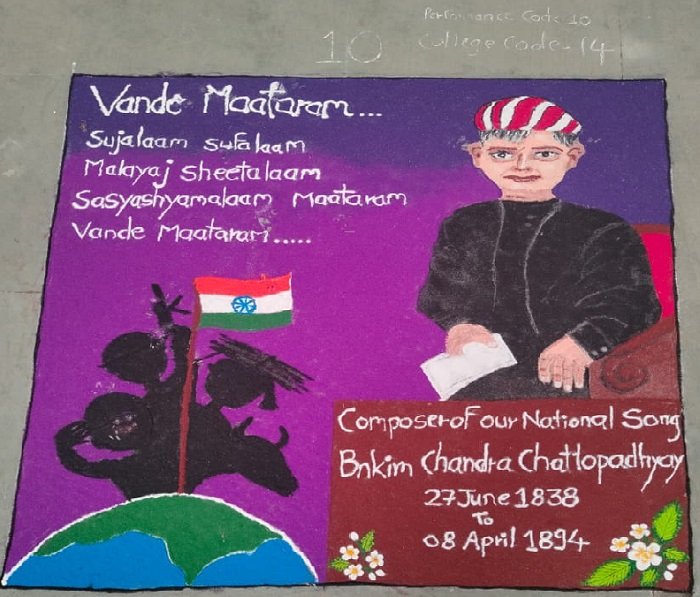 Performance Code 10
10
College Code-14
Vande Maataram...
Sujalaam sufalaam
Malayaj sheetalaam
Sasyashyamalaam Maataram
Vande Maataram.....
Composer of our National Song
Bnkim Chandra Chattopadhyay
27 June 1838
To
08 April 1894